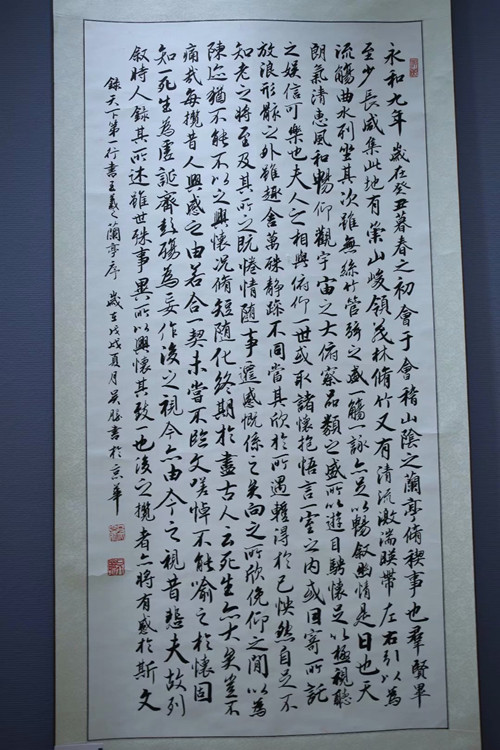 永和九年歲在癸丑暮春之初會于會稽山陰之蘭亭脩稧事也羣賢畢
至少長咸集此地有崇山峻領茂林脩竹又有清流激湍暎帶左右引以為
流觴曲水列坐其次雖無絲竹管弦之盛一觴一詠亦足以暢敘幽情是日也天
朗氣清惠風和暢仰觀宇宙之大俯察品類之盛所以遊目騁懷足以極視聽
之娛信可樂也夫人之相與俯仰一世或取諸懷抱悟言一室之內或因寄所託
放浪形骸之外雖趣舍萬殊靜躁不同當其欣於所遇暫得於己怏然自足不
知老之將至及其所之既惓情隨事遷感慨係之矣向之所欣俛仰之間以為
陳迹猶不能不以之興懷況脩短隨化終期於盡古人云死生亦大矣豈不
痛哉每攬昔人興感之由若合一契未嘗不臨文嗟悼不能喻之於懷固
知一死生為虛誕齊彭殤為妄作後之視今亦由今之視昔悲夫故列
敘時人錄其所述雖世殊事異所以興懷其致一也後之攬者亦將有感於斯文
錄天下第一行書王羲之蘭亭序歲在戊戌夏月書於京華